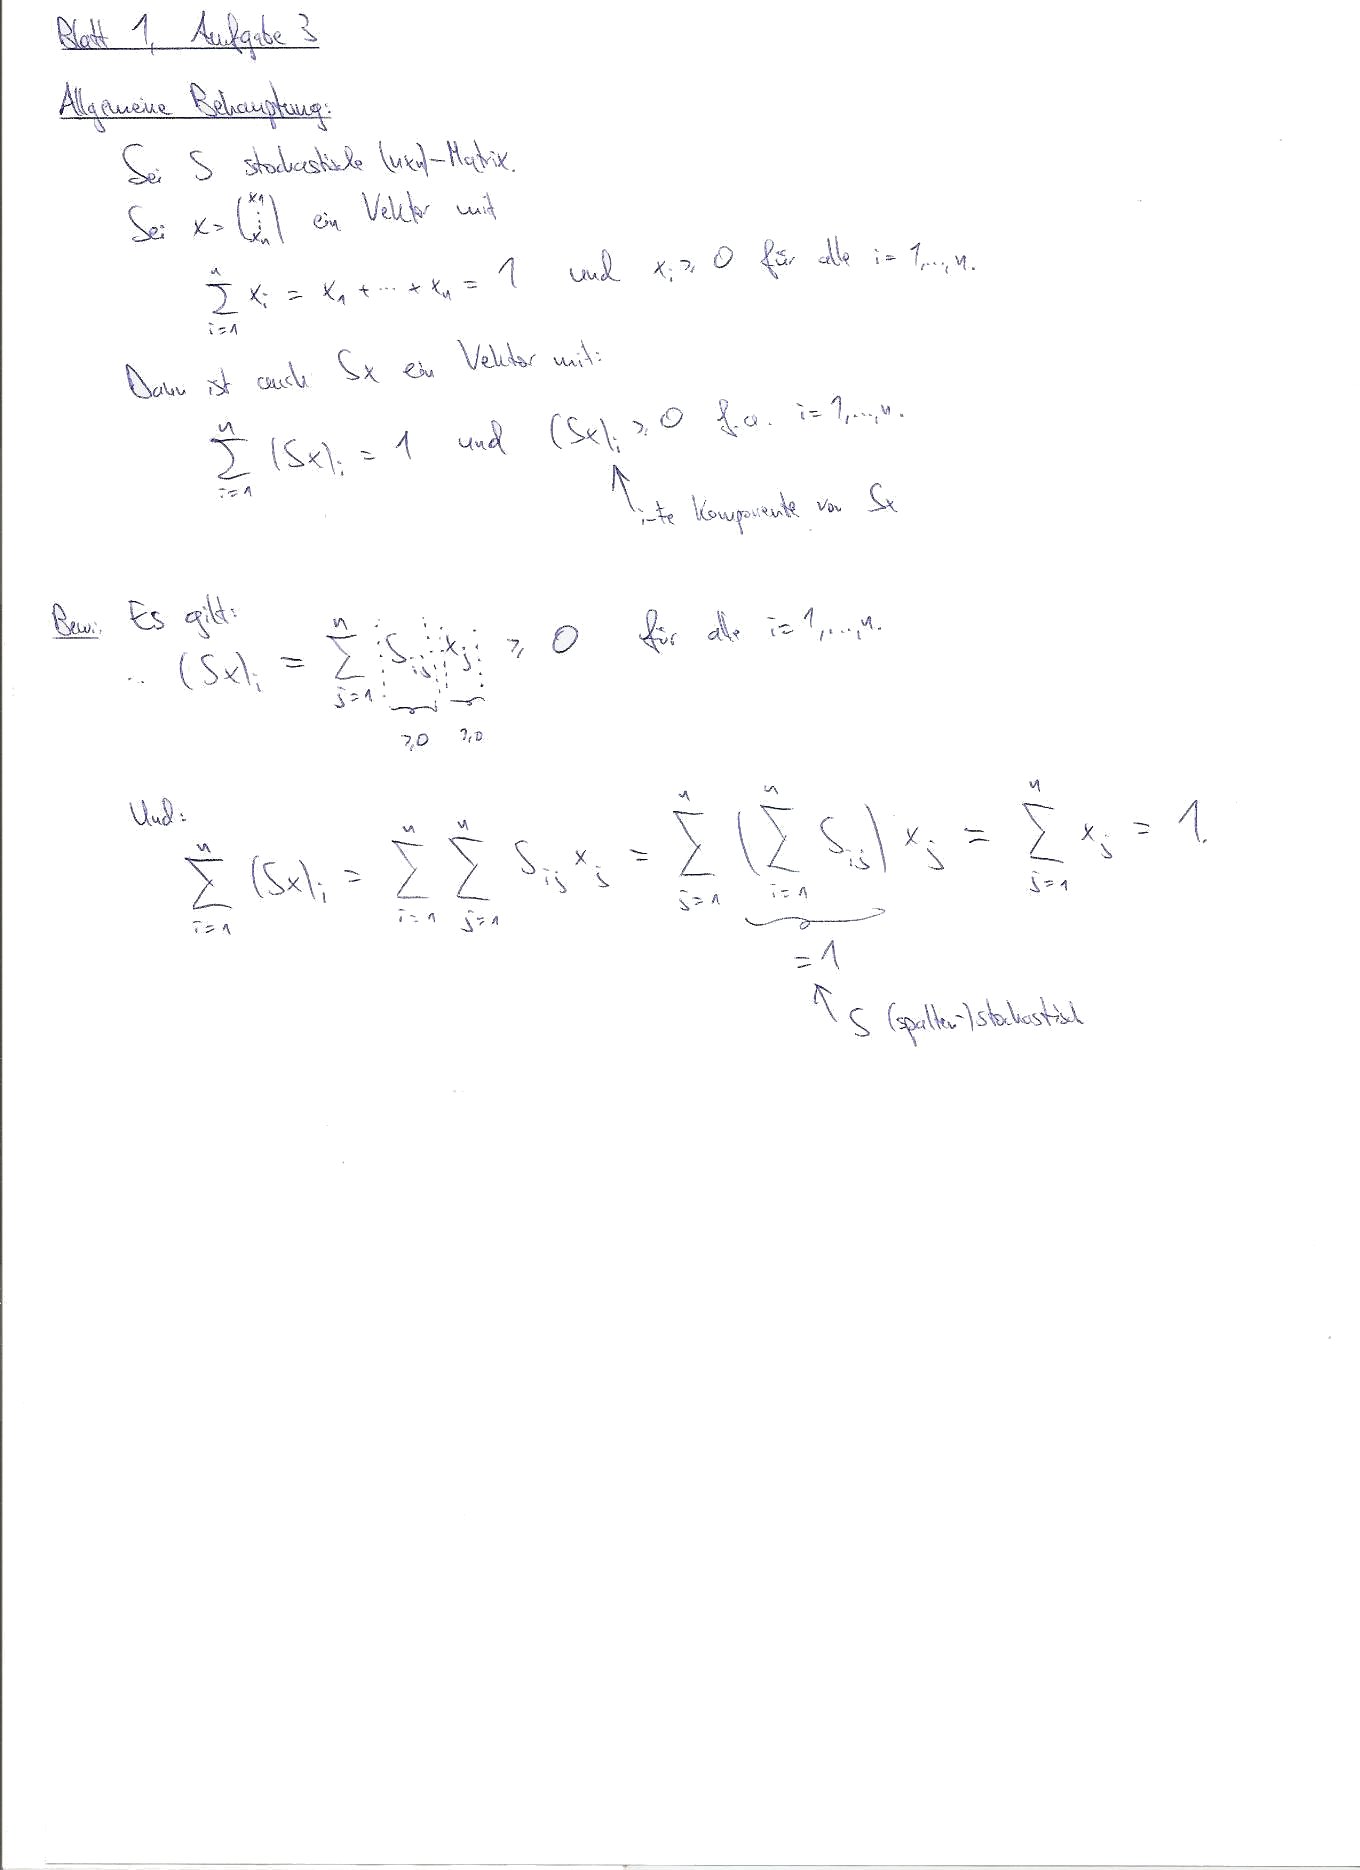 Blatt 1, Aufgabe 3
Allgemeine Behauptung:
Sei S stochastische (n×n)-Matrix.
Sei x = (x₁ ⋮ xₙ) ein Vektor mit
∑_{i=1}^{n} xᵢ = x₁ + ··· + xₙ = 1 und xᵢ ≥ 0 für alle i = 1,...,n.
Dann ist auch Sx ein Vektor mit:
∑_{i=1}^{n} (Sx)ᵢ = 1 und (Sx)ᵢ ≥ 0 f.a. i = 1,...,n.
↑ i-te Komponente von Sx
Bew.: Es gilt:
(Sx)ᵢ = ∑_{j=1}^{n} Sᵢⱼ xⱼ ≥ 0 für alle i = 1,...,n.
≥0 ≥0
Und:
∑_{i=1}^{n} (Sx)ᵢ = ∑_{i=1}^{n} ∑_{j=1}^{n} Sᵢⱼ xⱼ = ∑_{j=1}^{n} (∑_{i=1}^{n} Sᵢⱼ) xⱼ = ∑_{j=1}^{n} xⱼ = 1.
= 1
↑ S (spalten-)stochastisch